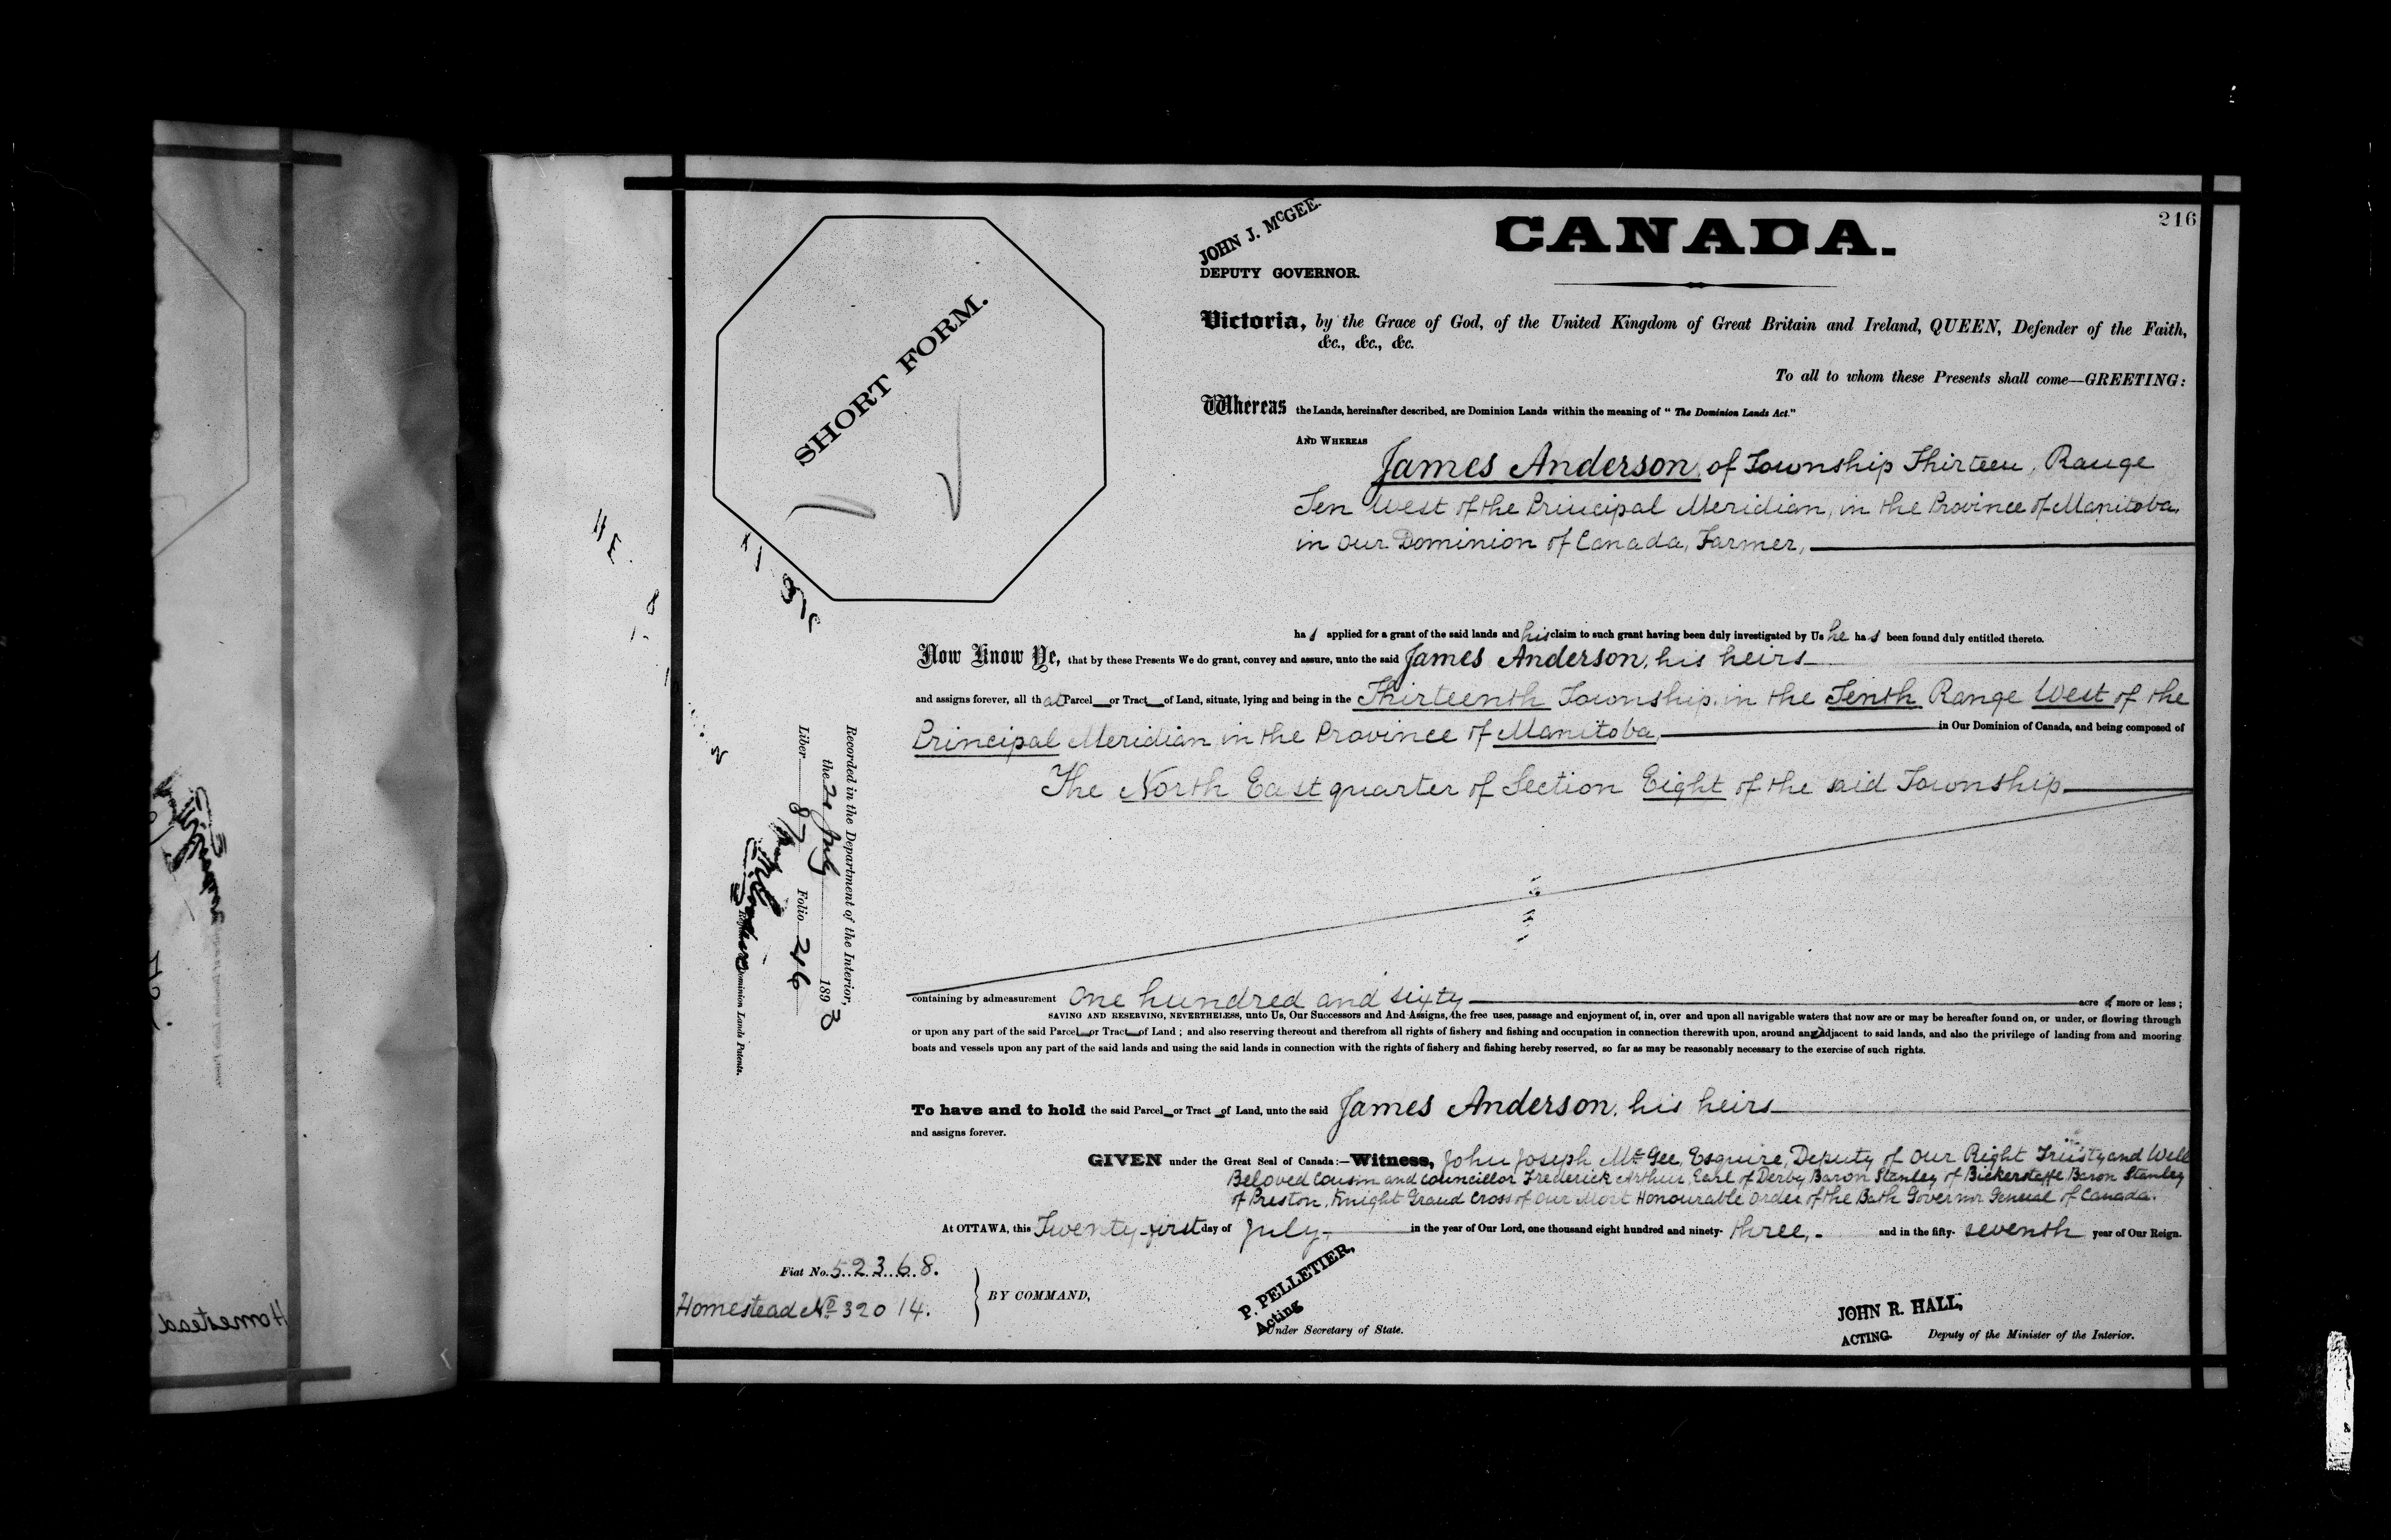 216
JOHN J. McGEE.
DEPUTY GOVERNOR.
CANADA.
SHORT FORM.
Victoria, by the Grace of God, of the United Kingdom of Great Britain and Ireland, QUEEN, Defender of the Faith,
&c., &c., &c.
To all to whom these Presents shall come—GREETING:
Whereas the Lands, hereinafter described, are Dominion Lands within the meaning of "The Dominion Lands Act."
AND WHEREAS
James Anderson, of Township Thirteen, Range
Ten West of the Principal Meridian, in the Province of Manitoba,
in Our Dominion of Canada, Farmer,
has applied for a grant of the said lands and his claim to such grant having been duly investigated by Us he has been found duly entitled thereto.
Now Know Ye, that by these Presents We do grant, convey and assure, unto the said James Anderson, his heirs
and assigns forever, all that Parcel or Tract of Land, situate, lying and being in the Thirteenth Township, in the Tenth Range West of the
Principal Meridian in the Province of Manitoba, in Our Dominion of Canada, and being composed of
The North East quarter of Section Eight of the said Township
containing by admeasurement One hundred and sixty acres more or less;
SAVING AND RESERVING, NEVERTHELESS, unto Us, Our Successors and And Assigns, the free uses, passage and enjoyment of, in, over and upon all navigable waters that now are or may be hereafter found on, or under, or flowing through
or upon any part of the said Parcel or Tract of Land; and also reserving thereout and therefrom all rights of fishery and fishing and occupation in connection therewith upon, around and adjacent to said lands, and also the privilege of landing from and mooring
boats and vessels upon any part of the said lands and using the said lands in connection with the rights of fishery and fishing hereby reserved, so far as may be reasonably necessary to the exercise of such rights.
To have and to hold the said Parcel or Tract of Land, unto the said James Anderson, his heirs
and assigns forever.
GIVEN under the Great Seal of Canada:—Witness, John Joseph McGee, Esquire, Deputy of Our Right Trusty and Well
Beloved Cousin and Councillor Frederick Arthur, Earl of Derby, Baron Stanley of Bickerstaffe, Baron Stanley
of Preston, Knight Grand Cross of Our Most Honourable Order of the Bath Governor General of Canada.
At OTTAWA, this Twenty-first day of July, in the year of Our Lord, one thousand eight hundred and ninety-three, and in the fifty-seventh year of Our Reign.
Fiat No. 52368.
Homestead No 32014.
BY COMMAND,
P. PELLETIER,
Acting
Under Secretary of State.
JOHN R. HALL,
ACTING Deputy of the Minister of the Interior.
Recorded in the Department of the Interior,
the July 1893
Liber 87 Folio 216
Dominion Lands Patents.
Homestead